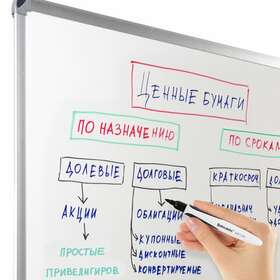 ЦЕННЫЕ БУМАГИ
ПО НАЗНАЧЕНИЮ
ПО СРОКАМ
ДОЛЕВЫЕ
ДОЛГОВЫЕ
КРАТКОСРОЧ
АКЦИИ
ОБЛИГАЦИИ
КУПОННЫЕ
ДИСКОНТНЫЕ
КОНВЕРТИРУЕМЫЕ
ПРОСТЫЕ
ПРИВЕЛИГИРОВ